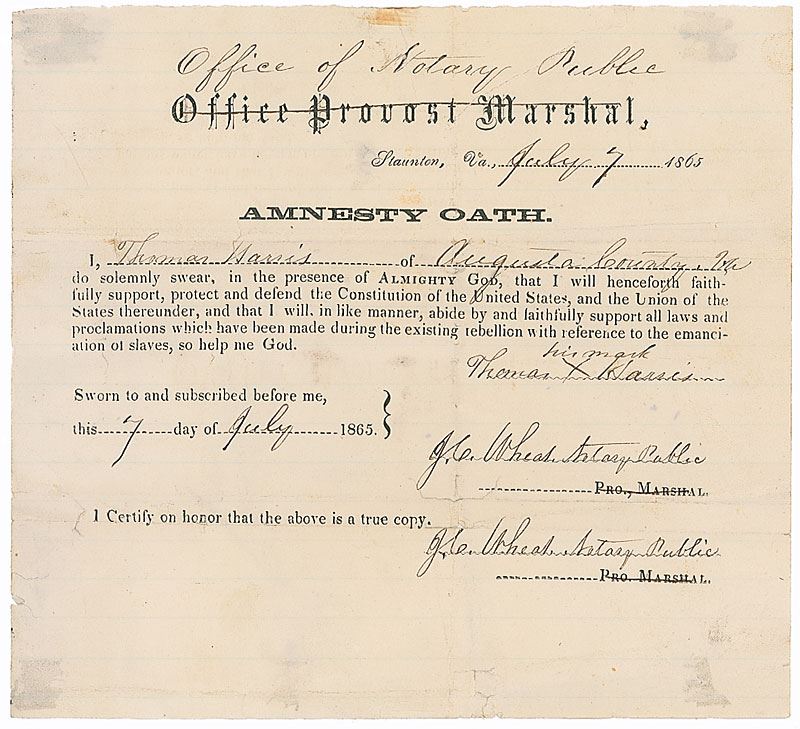 Office of Notary Public
Office Provost Marshal,
Staunton, Va., July 7 1865
AMNESTY OATH.
I, Thomas Harris of Augusta County, Va
do solemnly swear, in the presence of ALMIGHTY GOD, that I will henceforth faith-
fully support, protect and defend the Constitution of the United States, and the Union of the
States thereunder, and that I will, in like manner, abide by and faithfully support all laws and
proclamations which have been made during the existing rebellion with reference to the emanci-
ation of slaves, so help me God.
his mark
Thomas X Harris
Sworn to and subscribed before me,
this 7 day of July 1865. }
J.C. Wheat Notary Public
PRO., MARSHAL.
I Certify on honor that the above is a true copy.
J.C. Wheat Notary Public
PRO. MARSHAL.